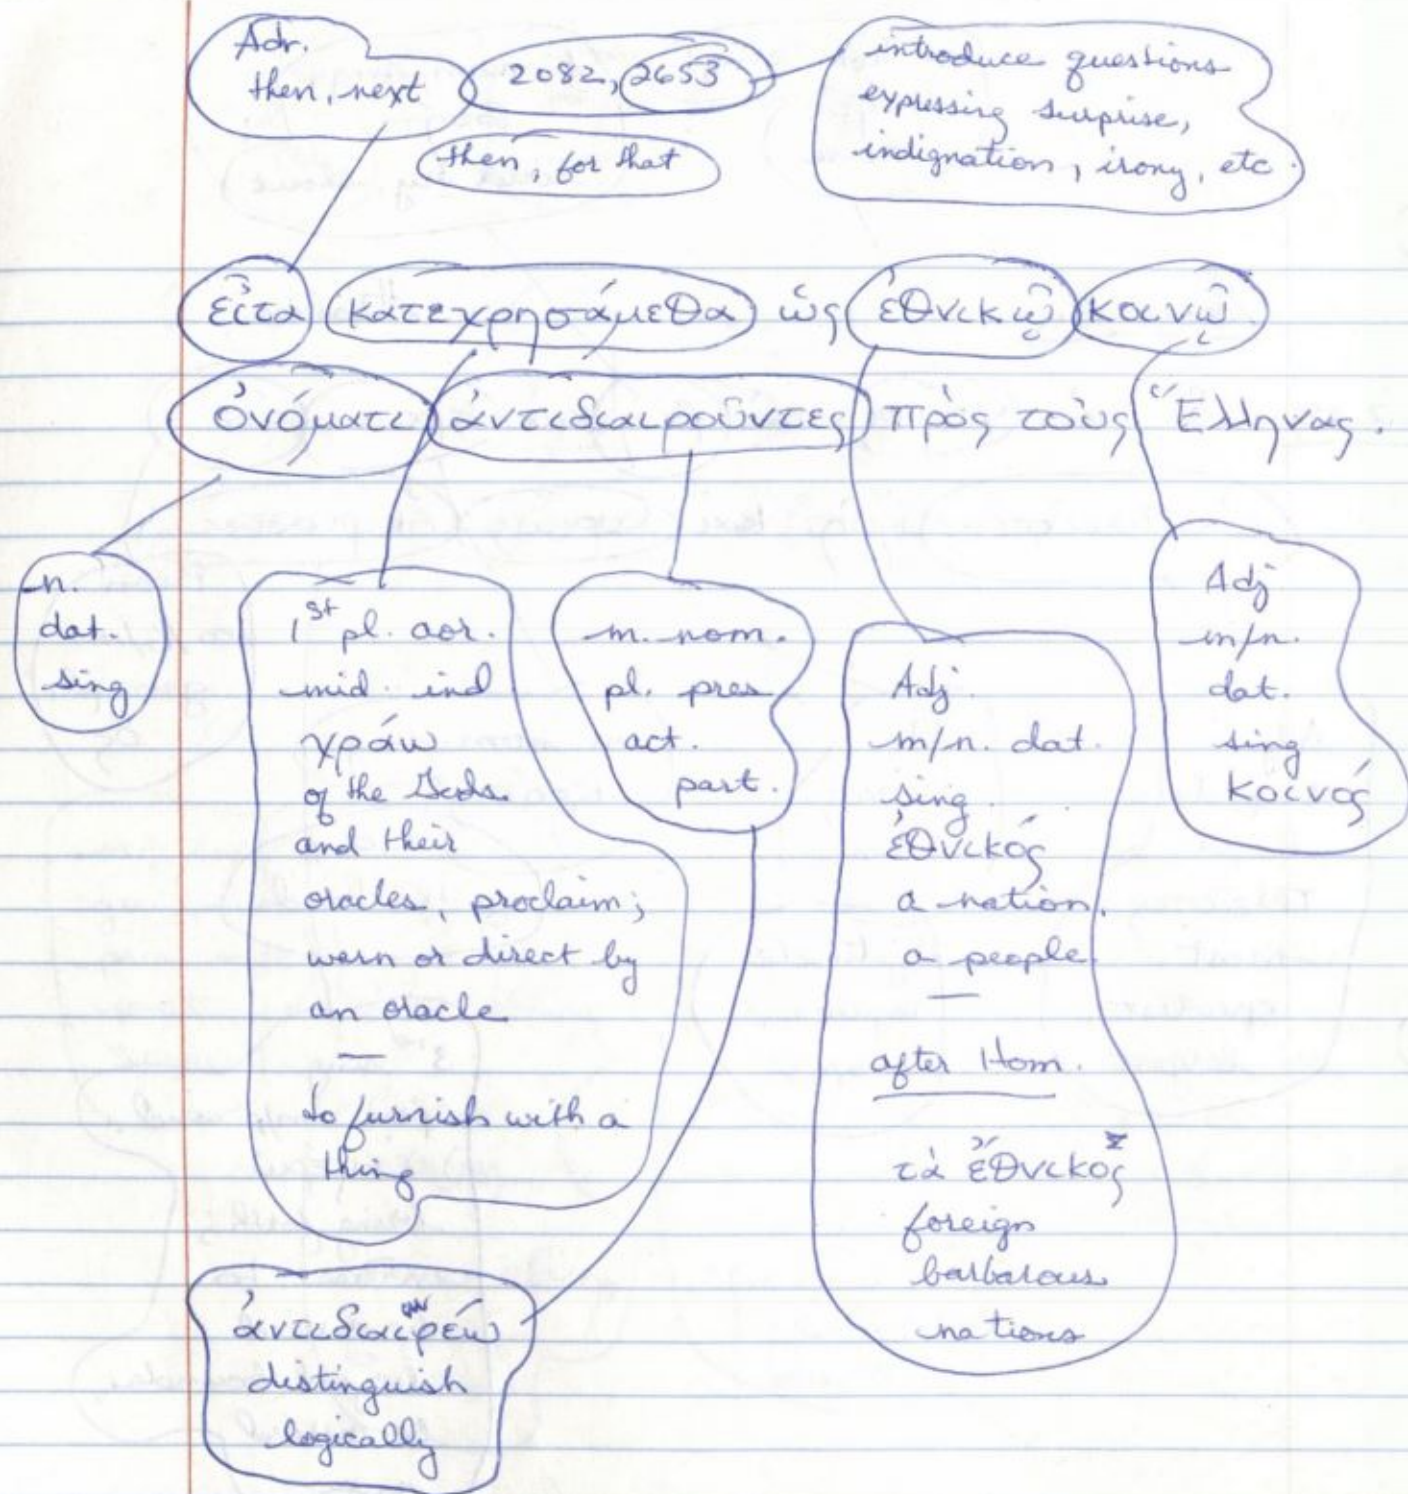 Adv.
then, next
2082, 2653
then, for that
introduce questions
expressing surprise,
indignation, irony, etc.
εἶτα κατεχρησάμεθα ὡς ἐθνικῷ κοινῷ
ὀνόματι ἀντιδιαιροῦντες πρὸς τοὺς Ἕλληνας.
n.
dat.
sing
1st pl. aor.
mid. ind
χράω
of the Gods
and their
oracles, proclaim;
warn or direct by
an oracle
—
to furnish with a
thing
m. nom.
pl. pres
act.
part.
Adj.
m/n. dat.
sing.
ἐθνικός
a nation.
a people
—
after Hom.
τὰ ἔθνικος
foreign
barbarous
nations
Adj
m/n.
dat.
sing
κοινός
ἀντιδιαιρέω
distinguish
logically